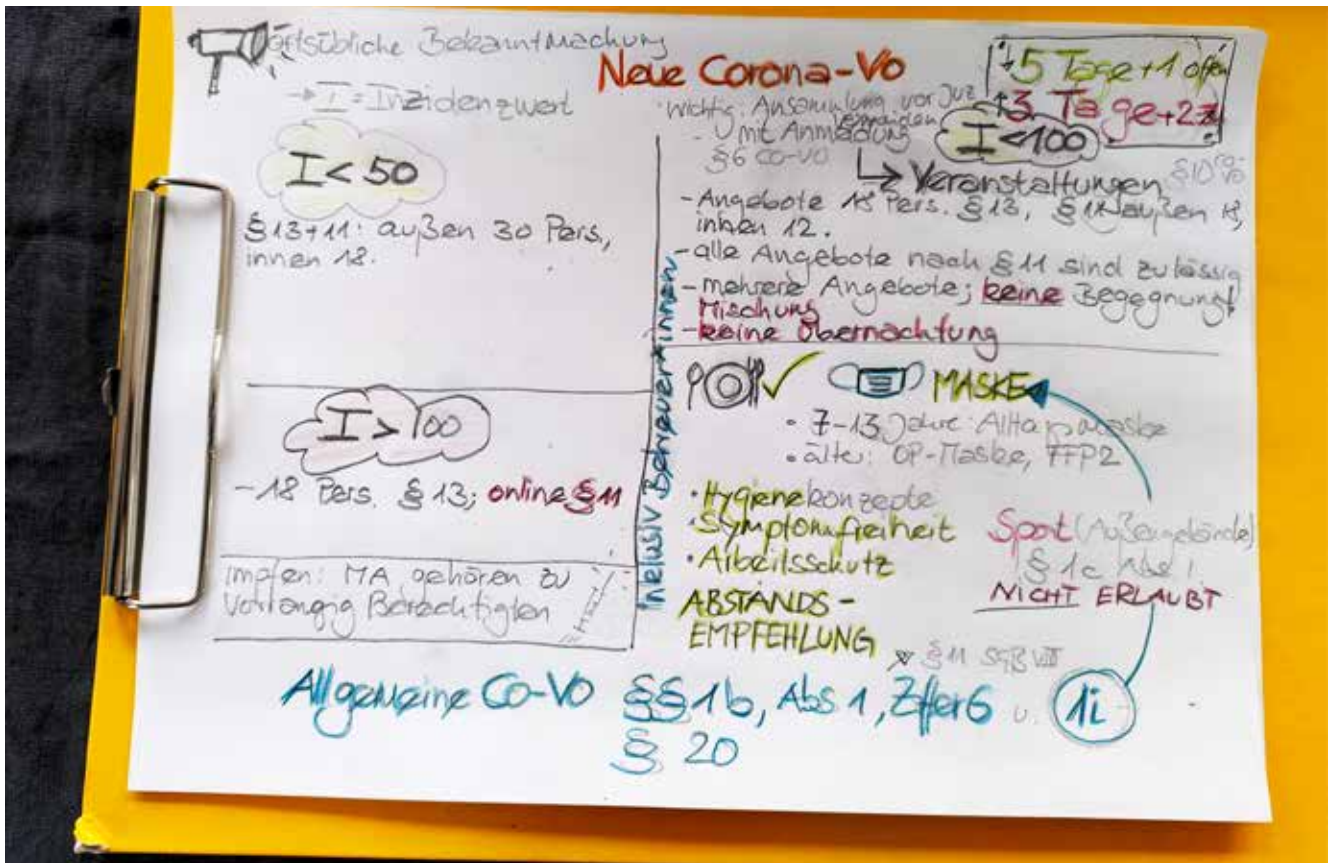 Ortsübliche Bekanntmachung
→ I = Inzidenzwert
I < 50
§ 13 + 11: außen 30 Pers.,
innen 18.
I > 100
- 18 Pers. § 13; online § 11
Impfen: MA gehören zu
vorrangig Berechtigten
Neue Corona-Vo
↓ 5 Tage + 1 offen
↑ 3 Tage + 2 zu
wichtig: Ansammlung vor Juz
vermeiden
- mit Anmeldung
§ 6 CO-VO
I < 100
↳ Veranstaltungen § 10 CO-VO
- Angebote 18 Pers. § 13, § 11 außen 18,
innen 12.
- alle Angebote nach § 11 sind zulässig
- mehrere Angebote; keine Begegnung!
Mischung
- keine Übernachtung
inklusiv Betreuer*innen
MASKE
• 7-13 Jahre: Alltagsmaske
• älter: OP-Maske, FFP2
• Hygienekonzepte
• Symptomfreiheit
• Arbeitsschutz
ABSTANDS-
EMPFEHLUNG
Sport (Außengelände)
§ 1c Abs 1
NICHT ERLAUBT
§ 11 SGB VIII
Allgemeine Co-Vo §§ 1b, Abs 1, Ziffer 6 u. 1i
§ 20